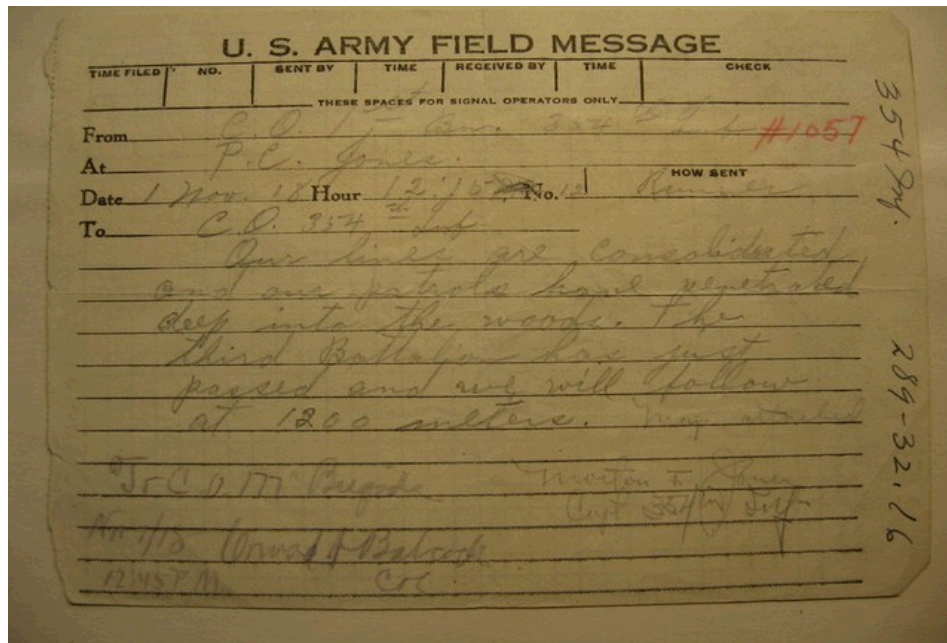 U. S. ARMY FIELD MESSAGE
TIME FILED NO. SENT BY TIME RECEIVED BY TIME CHECK
THESE SPACES FOR SIGNAL OPERATORS ONLY
From C. O. 1st Bn. 354th Inf #1057
At P.C. Jones.
HOW SENT
Date 1 Nov. 18 Hour 12:15 No. 12 Runner
To C. O. 354th Inf
Our lines are consolidated
and our patrols have penetrated
deep into the woods. The
third Battalion has just
passed and we will follow
at 1200 meters. Map attached
To C O 177 Brigade
Capt 354 Inf
Nov 1/18 Babcock
12:45 P.M. Col
354 Inf.
289-32.16